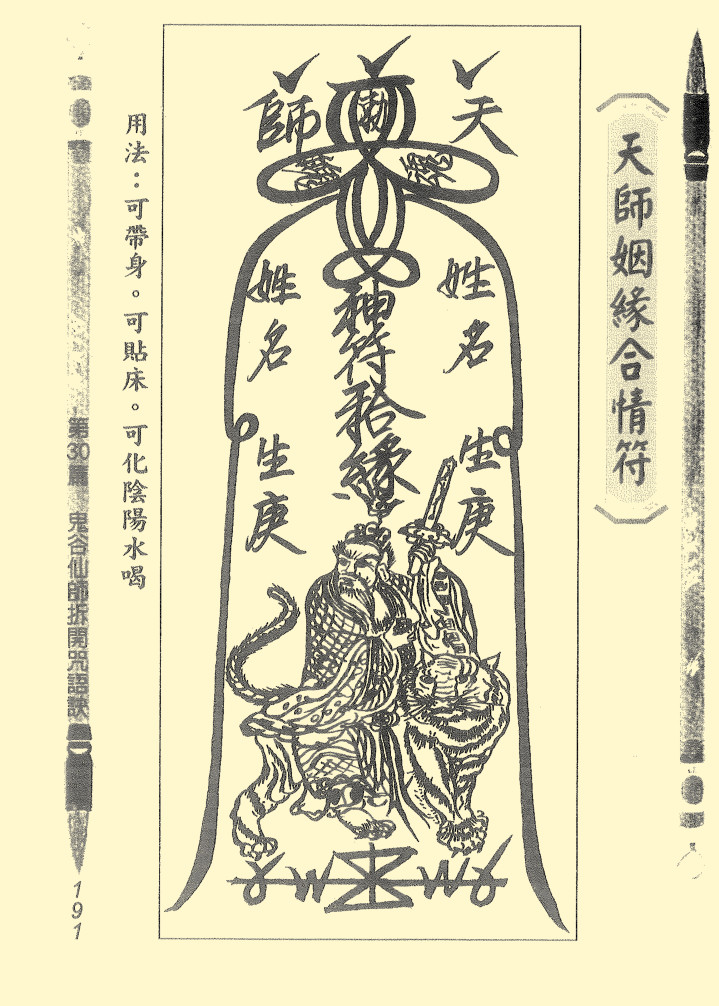 天師姻緣合情符
天師
勅
姓名
生庚
神符和合緣
姓名
生庚
用法：可帶身。可貼床。可化陰陽水喝
第30篇 鬼谷仙師拆開咒語訣
191